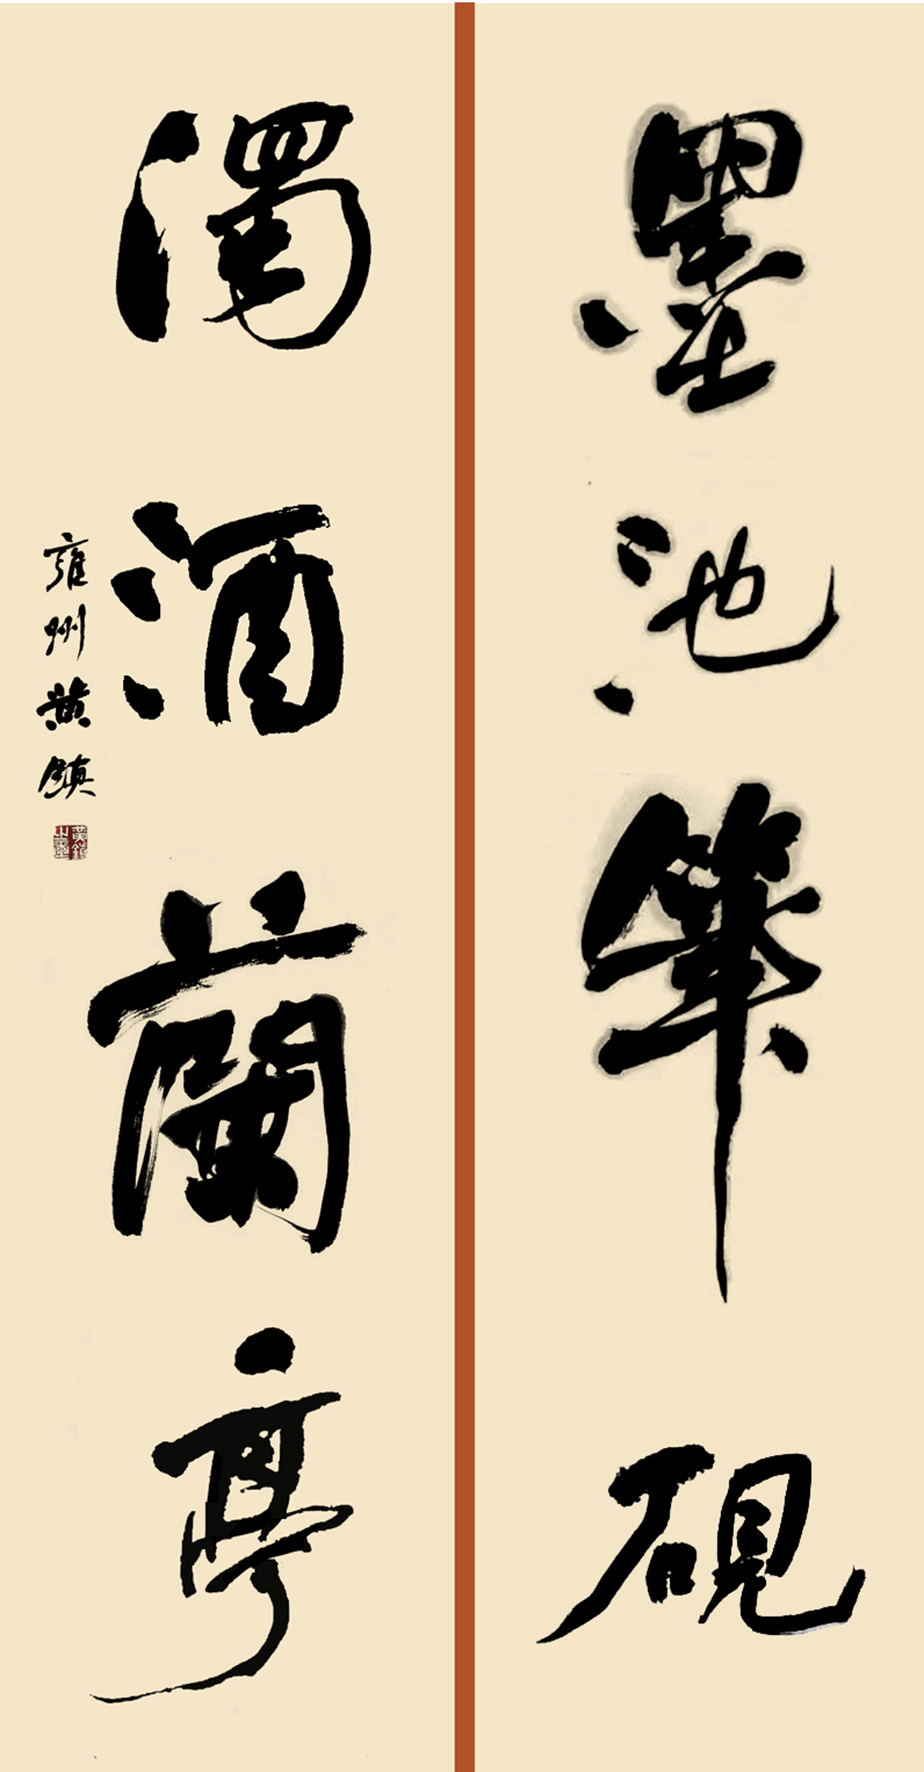 墨池筆硯
濁酒蘭亭
雍州黄鎮